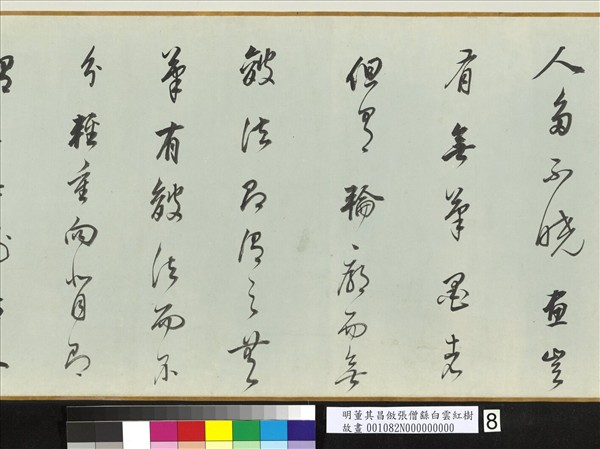 人多不曉畫豈
有無筆墨者
但有輪廓而無
皴法即謂之無
筆有皴法而不
分輕重向背即
明董其昌倣張僧繇白雲紅樹
故畫001082N000000000
8